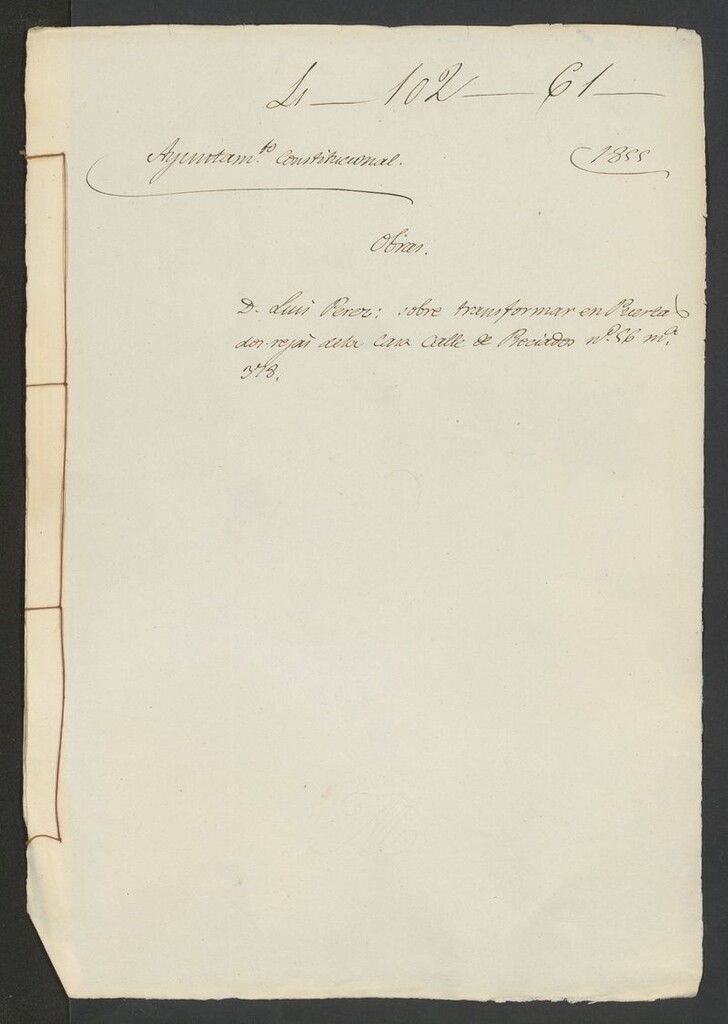 4 — 102 — 61 —
Ayuntam.to Constitucional. 1855
Obras.
D. Luis Perez: sobre transformar en Puertas
dos rejas dela Casa Calle de Preciados nº. 56 mª.
378.